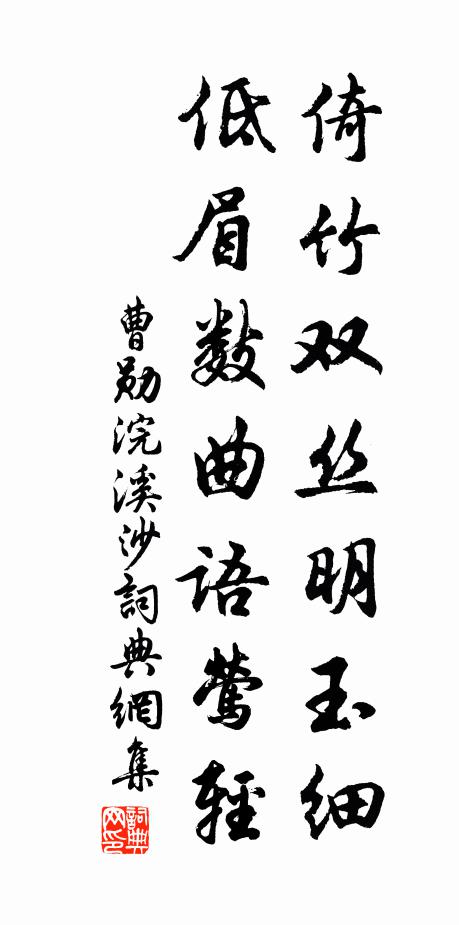 倚竹双丝明玉细
低眉数曲语莺輕
曹勋浣溪沙詞典網集
詞典网印